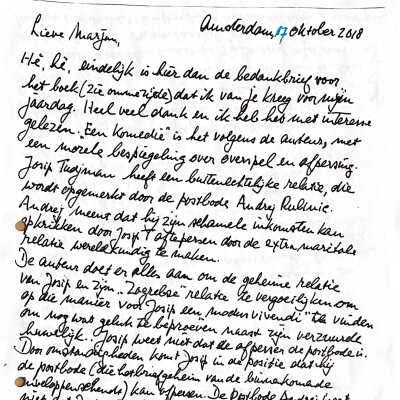 Amsterdam, 17 Oktober 2018
Lieve Marjan,
Hè, hè, eindelijk is hier dan de bedankbrief voor
het boek (zie ommezijde) dat ik van je kreeg voor mijn
jaardag. Heel veel dank en ik heb het met interesse
gelezen. "Een Komedie" is het volgens de auteur, met
een morele bespiegeling over overspel en afpersing.
Josip heeft een buitenechtelijke relatie, die
wordt opgemerkt door de postbode Andrej Rubinic.
Andrej meent dat hij zijn schamele inkomsten kan
opkrikken door Josip T af te persen door de extra maritale
relatie wereldkundig te maken.
De auteur doet er alles aan om de geheime relatie
van Josip en zijn "Zagrebse" relatie te vergoeilijken om
op die manier voor Josip een "modus vivendi" te vinden
om nog wat geluk te beproeven naast zijn verzuurde
huwelijk. Josip weet niet dat de afperser de postbode is.
Door omstandigheden komt Josip in de positie dat hij
de postbode (die het briefgeheim van de binnenkomende
enveloppen schendt) kan afpersen. De postbode Andrej weet
niet dat Jos